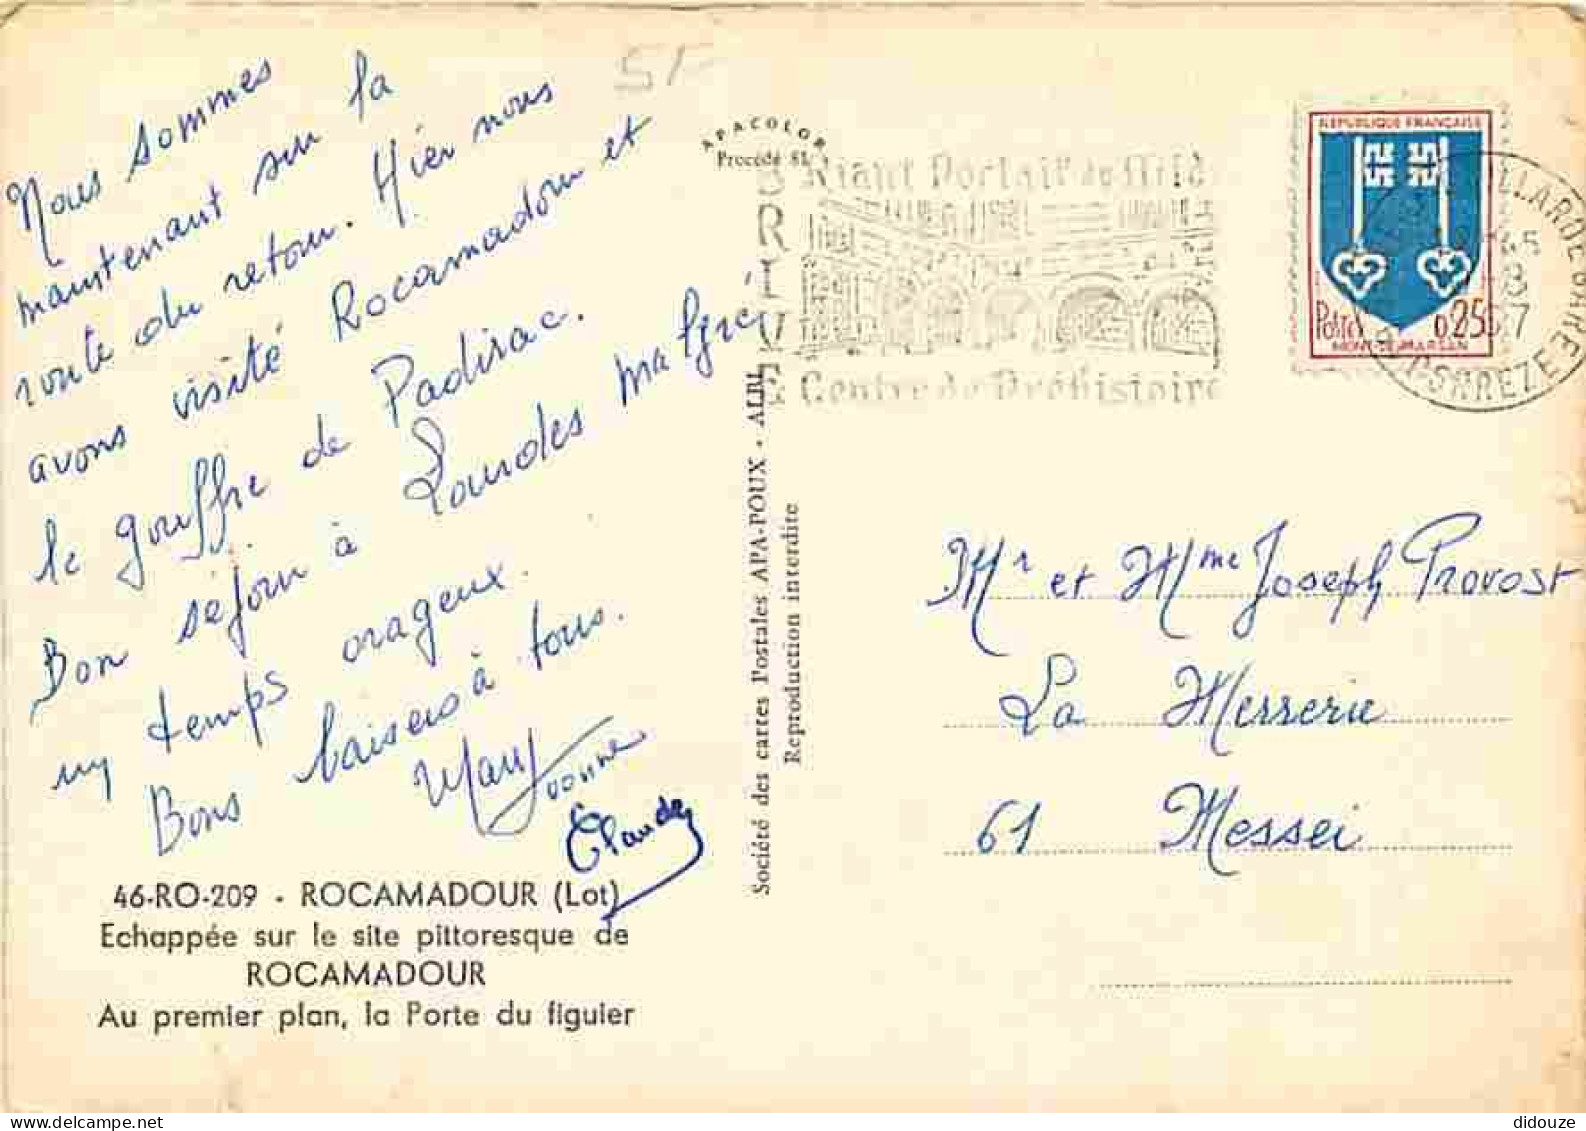 Nous sommes
maintenant sur la
route du retour. Hier nous
avons visité Rocamadour et
le gouffre de Padirac.
Bon séjour à Lourdes malgré
un temps orageux.
Bons baisers à tous.
Mary Yvonne
Claude
46-RO-209 - ROCAMADOUR (Lot)
Echappée sur le site pittoresque de
ROCAMADOUR
Au premier plan, la Porte du figuier
5F
APACOLOR
Procédé 81
Société des cartes Postales APA-POUX - ALBI
Reproduction interdite
BRIVE
Riant Portail du Midi
Centre de Préhistoire
REPUBLIQUE FRANÇAISE
Postes 0.25
MONT-DE-MARSAN
GAILLARDE GARE
CORREZE
Mr et Mme Joseph Provost
La Merserie
61 Messei
didouze